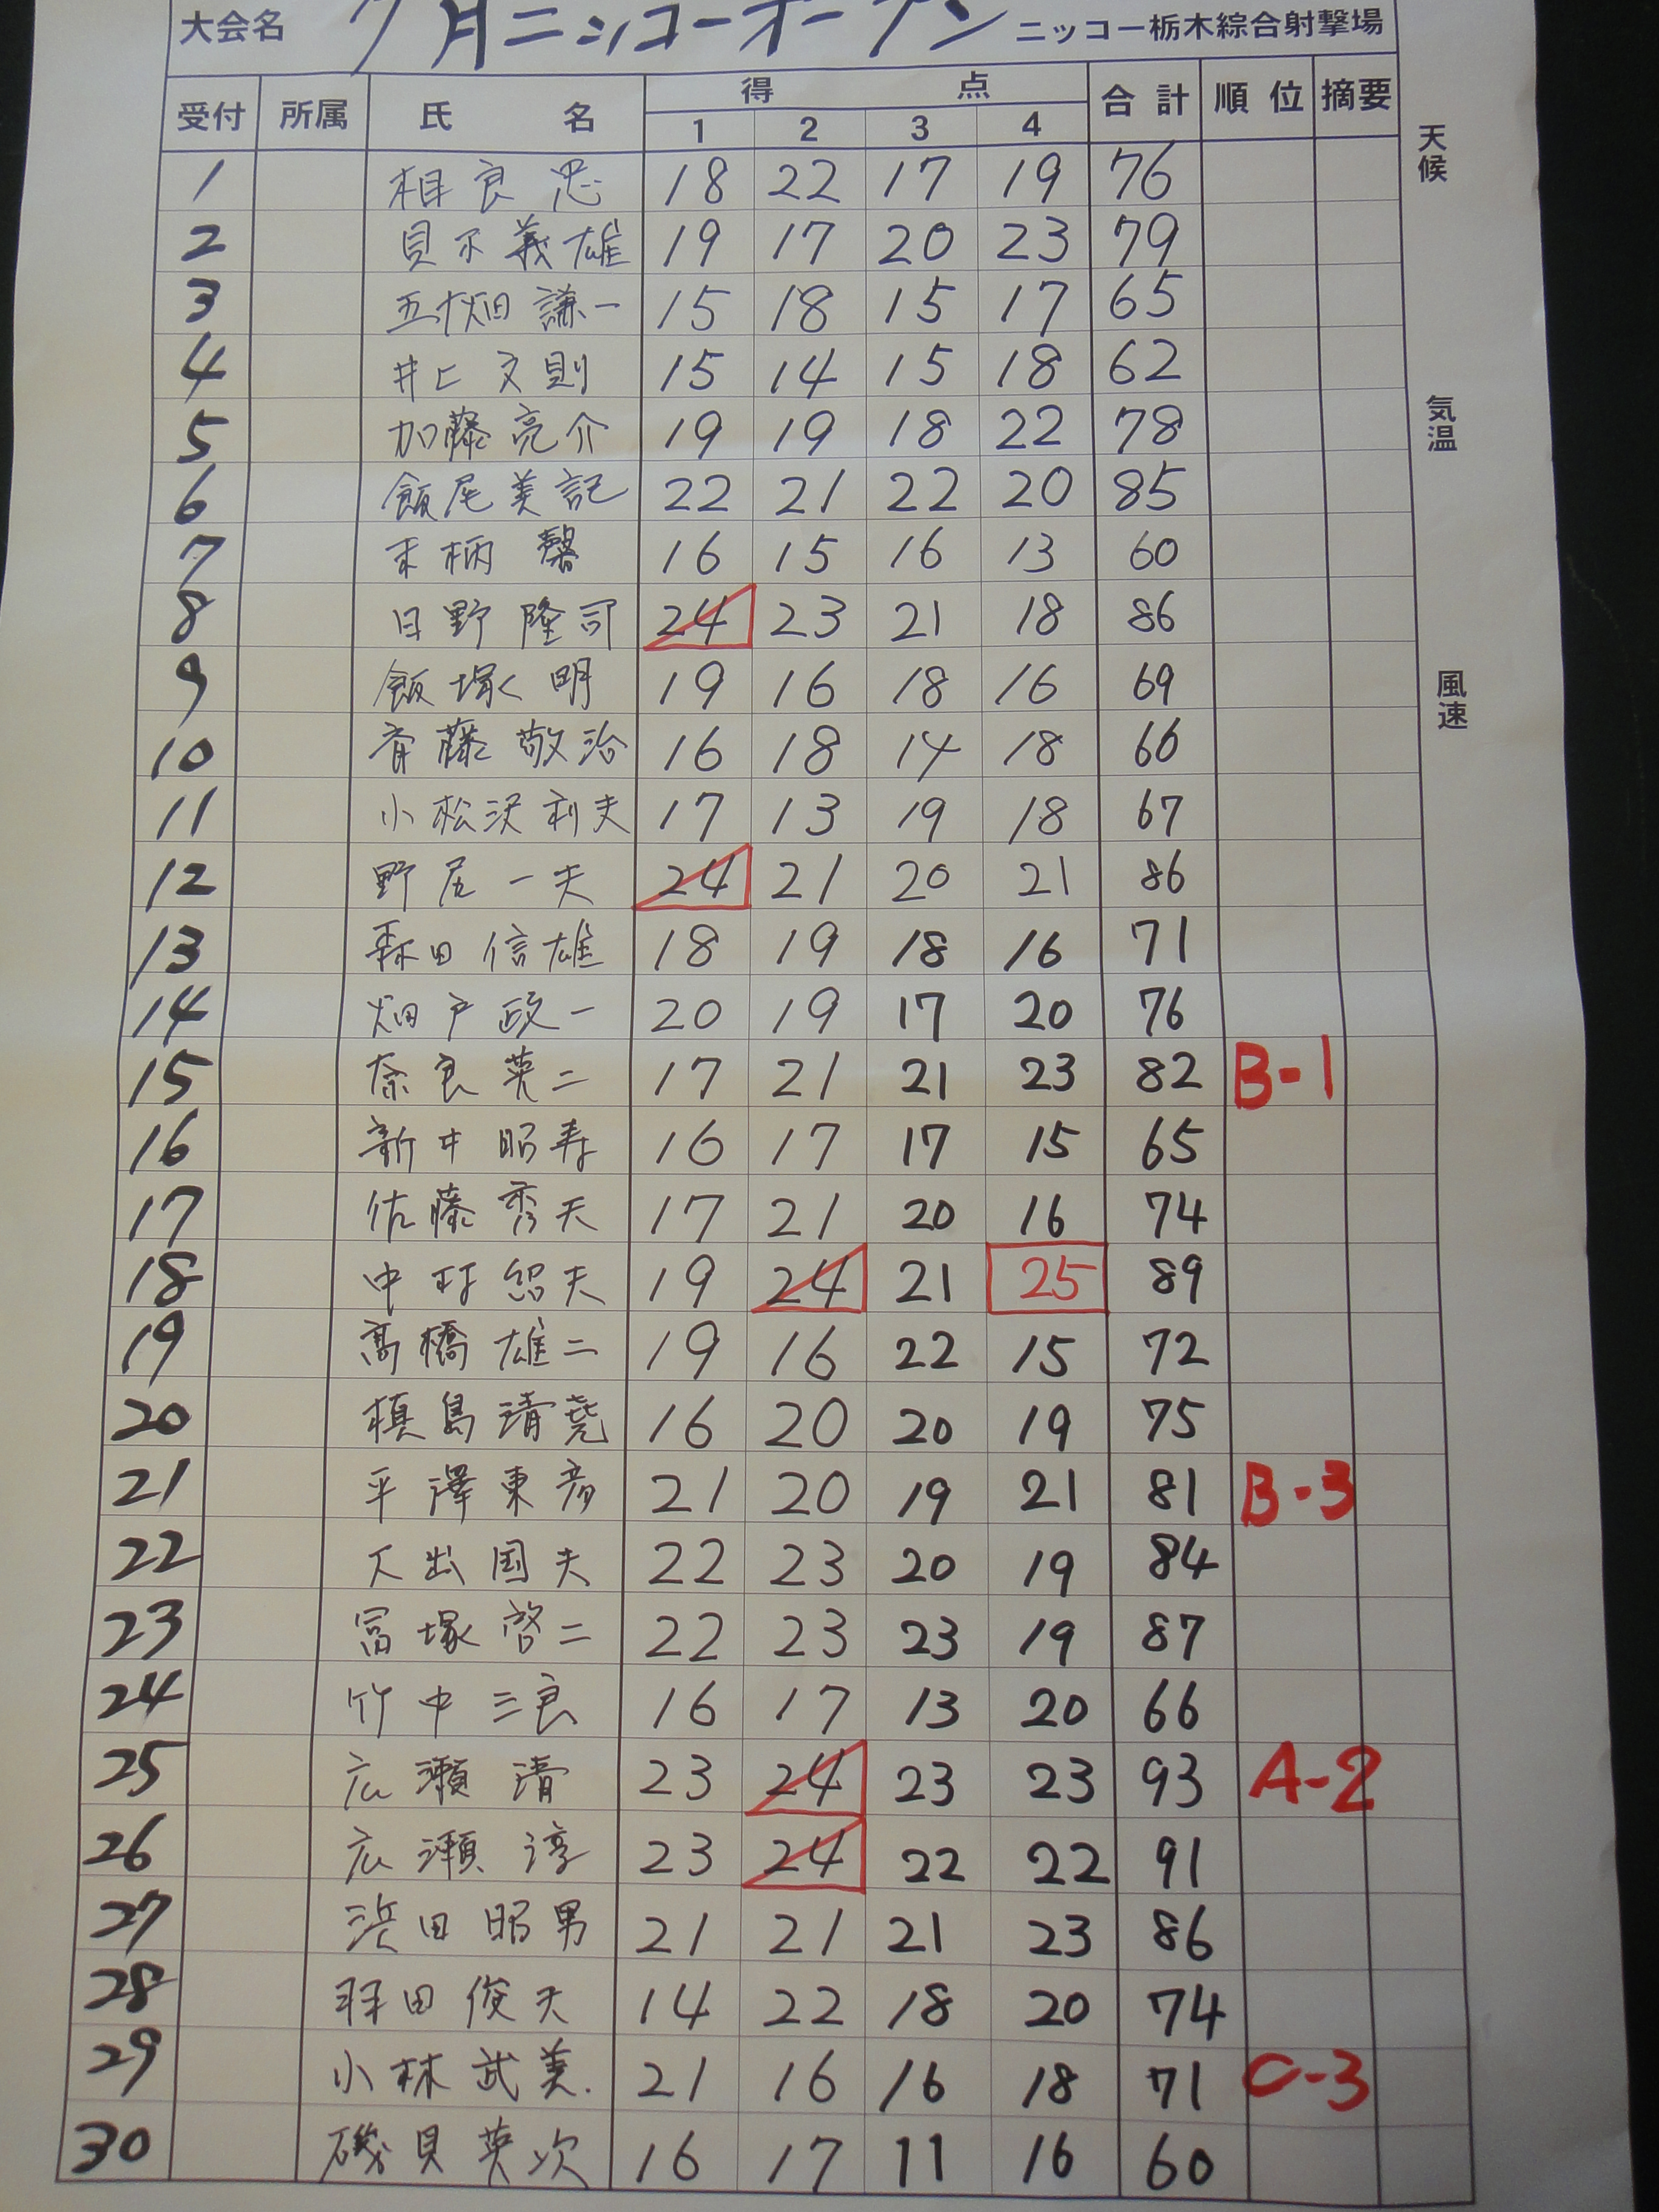 大会名 7月ニッコーオープン ニッコー栃木綜合射撃場
受付 所属 氏名 得点 合計 順位 摘要
1 2 3 4
天候
気温
風速
1 相良 忠 18 22 17 19 76
2 貝不義雄 19 17 20 23 79
3 五十畑謙一 15 18 15 17 65
4 井上文則 15 14 15 18 62
5 加藤亮介 19 19 18 22 78
6 飯尾美記 22 21 22 20 85
7 末柄 馨 16 15 16 13 60
8 日野隆司 24 23 21 18 86
9 飯塚 明 19 16 18 16 69
10 斉藤敬治 16 18 14 18 66
11 小松沢利夫 17 13 19 18 67
12 野尻一夫 24 21 20 21 86
13 森田信雄 18 19 18 16 71
14 畑戸政一 20 19 17 20 76
15 奈良英二 17 21 21 23 82 B-1
16 新井昭寿 16 17 17 15 65
17 佐藤秀夫 17 21 20 16 74
18 中村紹夫 19 24 21 25 89
19 髙橋雄二 19 16 22 15 72
20 槙島清尭 16 20 20 19 75
21 平澤東彦 21 20 19 21 81 B-3
22 大出国夫 22 23 20 19 84
23 冨塚啓二 22 23 23 19 87
24 竹中三良 16 17 13 20 66
25 広瀬 清 23 24 23 23 93 A-2
26 広瀬 淳 23 24 22 22 91
27 浜田昭男 21 21 21 23 86
28 羽田俊夫 14 22 18 20 74
29 小林武美. 21 16 16 18 71 C-3
30 磯貝英次 16 17 11 16 60